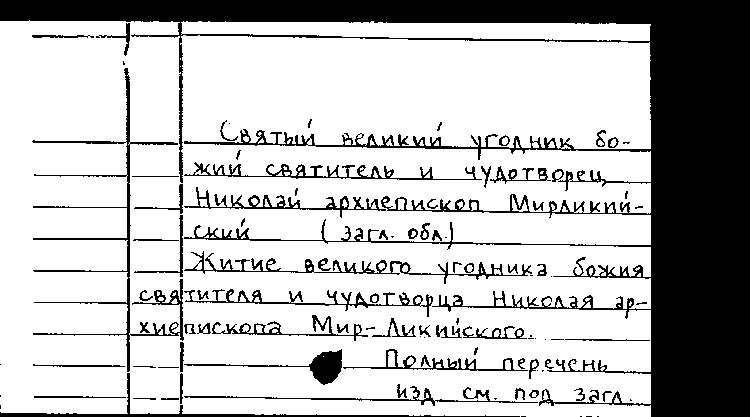 Святый великий угодник бо-
жий святитель и чудотворец
Николай архиепископ Мирликий-
ский (загл. обл.)
Житие великого угодника божия
святителя и чудотворца Николая ар-
хиепископа Мир-Ликийского.
Полный перечень
изд см. под загл.